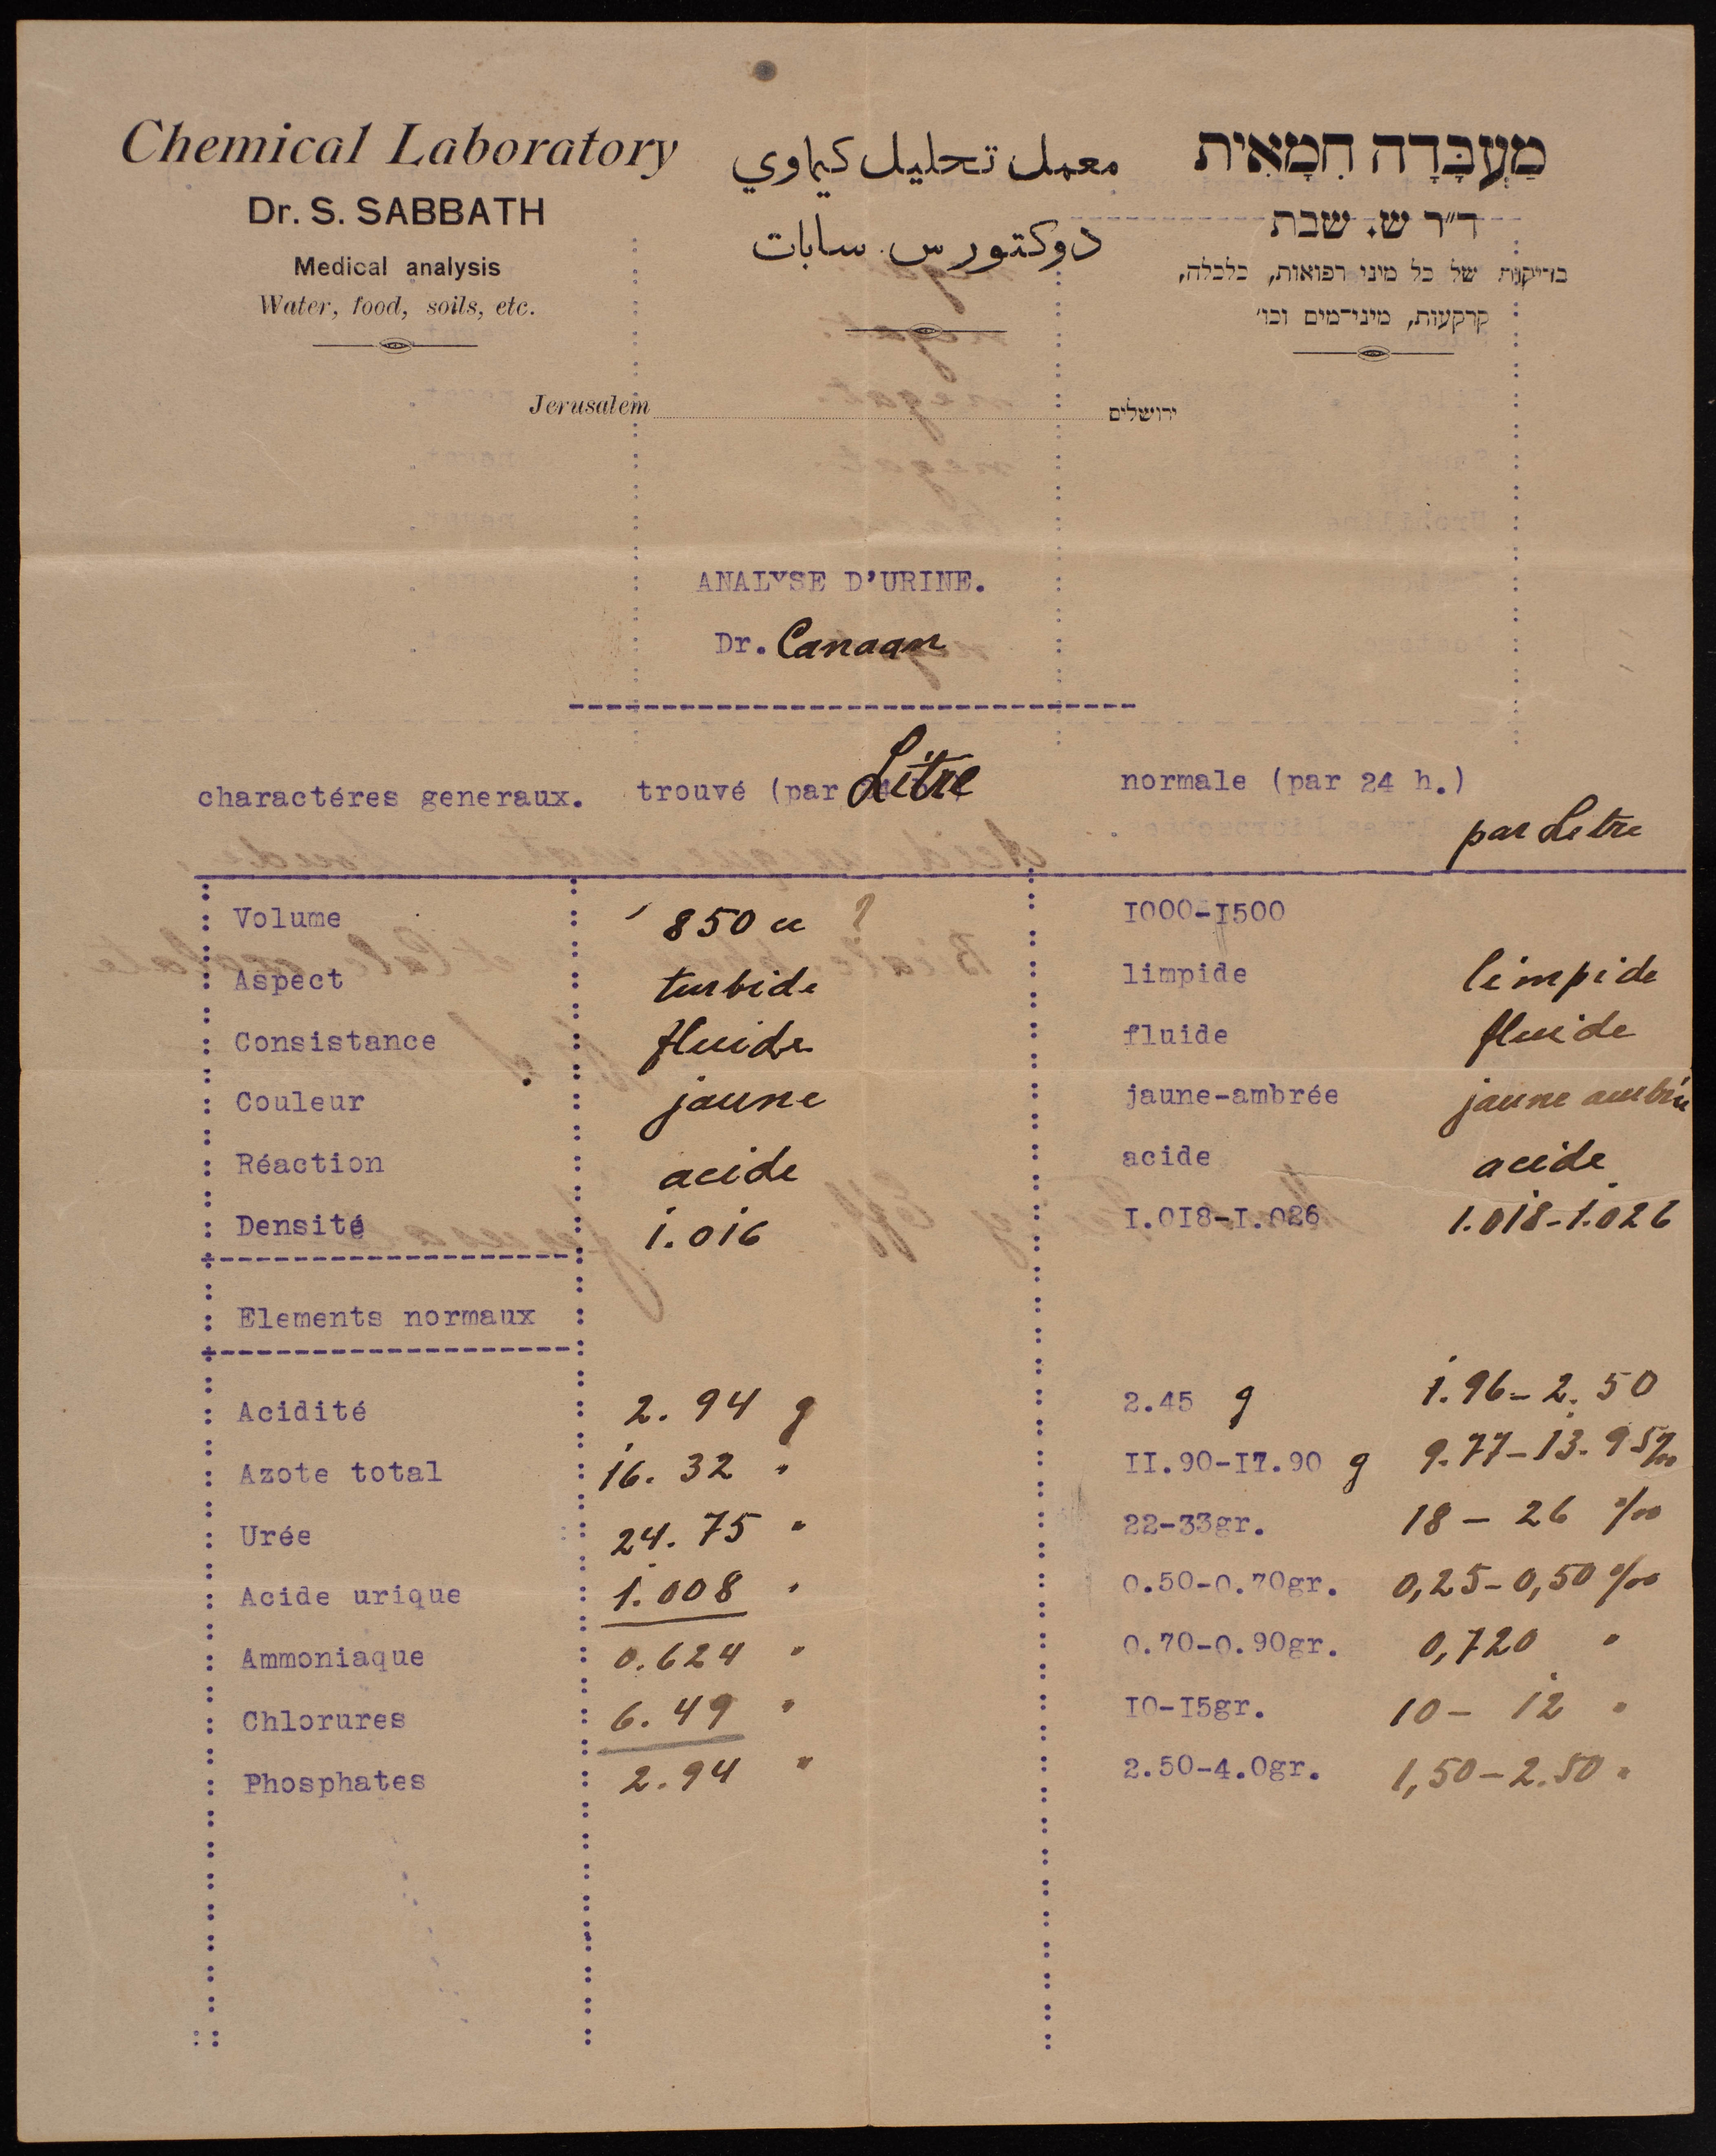 Chemical Laboratory
Dr. S. SABBATH
Medical analysis
Water, food, soils, etc.
معمل تحليل كيماوي
دوكتور س. سابات
מַעְבָּדָה חִמָאִית
ד״ר ש. שבת
בדיקות של כל מיני רפואות, כלכלה,
קרקעות, מיני־מים וכו׳
Jerusalem ירושלים
ANALYSE D'URINE.
Dr. Canaan
charactéres generaux. trouvé (par Litre normale (par 24 h.)
par Litre
Volume 850 cc ? 1000-1500
Aspect turbide limpide limpide
Consistance fluide fluide fluide
Couleur jaune jaune-ambrée jaune ambrée
Réaction acide acide acide
Densité 1.016 1.018-1.026 1.018-1.026
Elements normaux
Acidité 2.94 g 2.45 g 1.96-2.50
Azote total 16.32 " 11.90-17.90 g 9.77-13.95‰
Urée 24.75 " 22-33gr. 18-26 ‰
Acide urique 1.008 " 0.50-0.70gr. 0,25-0,50 ‰
Ammoniaque 0.624 " 0.70-0.90gr. 0,720 "
Chlorures 6.49 " 10-15gr. 10-12 "
Phosphates 2.94 " 2.50-4.0gr. 1,50-2.50 "